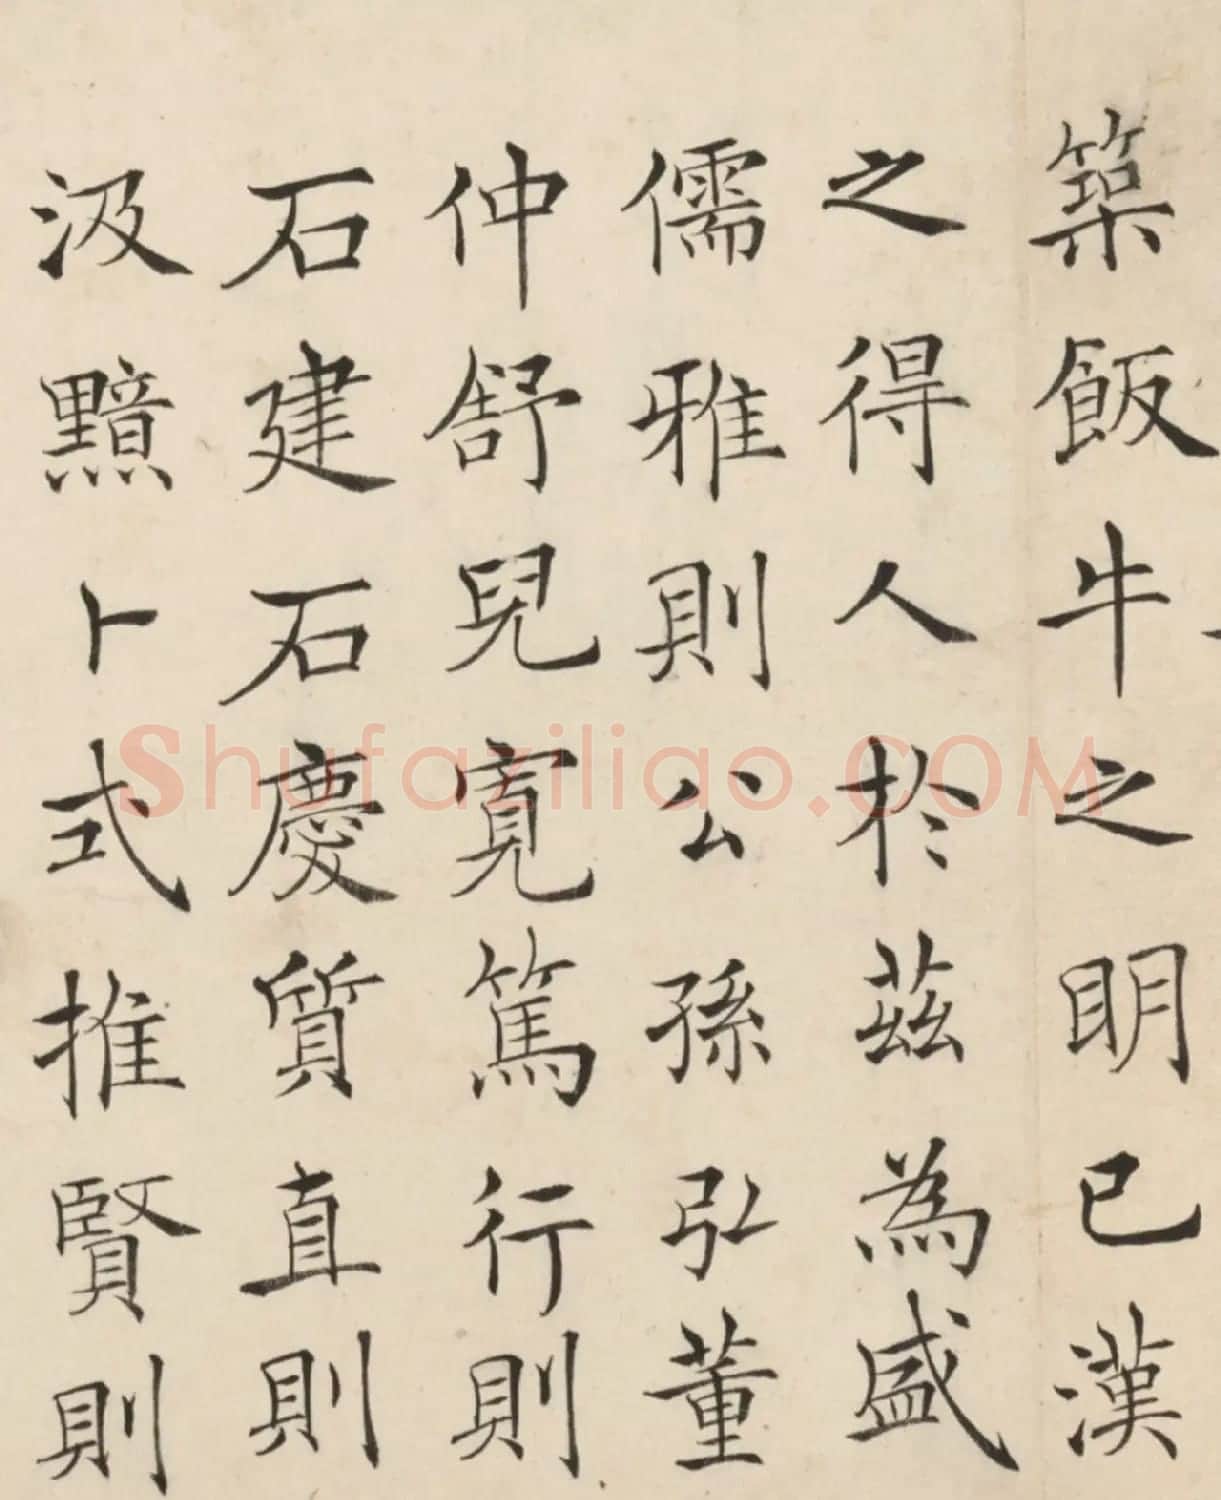 築飯牛之明已漢
之得人於茲為盛
儒雅則公孫弘董
仲舒兒寬篤行則
石建石慶質直則
汲黯卜式推賢則
Shufaziliao.COM